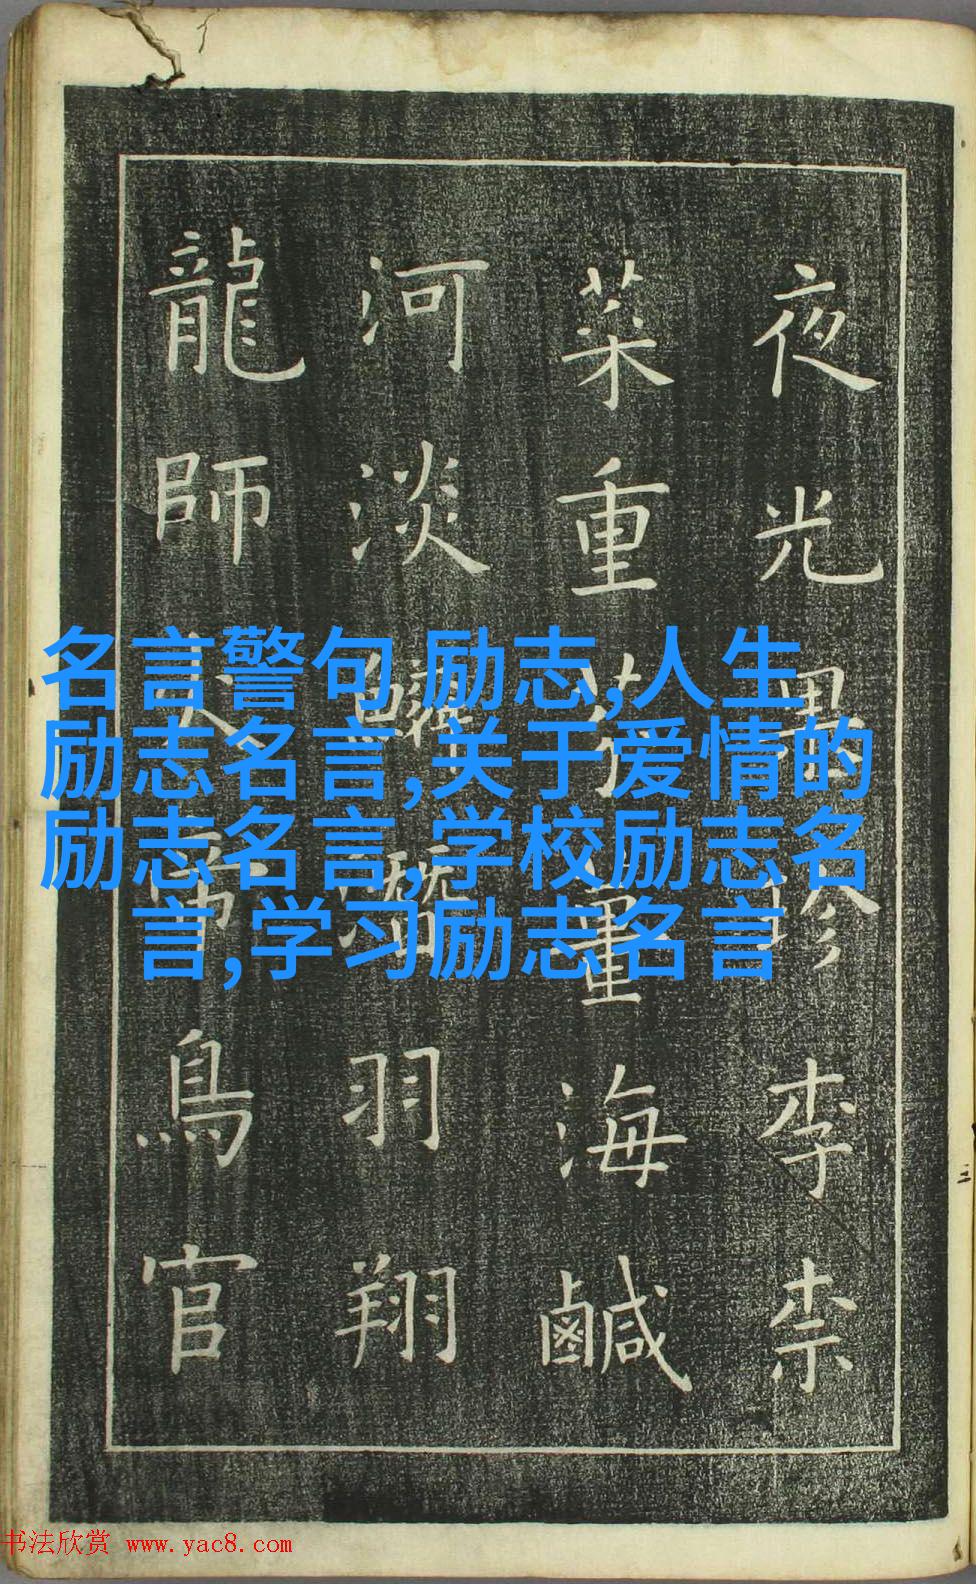 夜光果珍李柰
菜重芥薑海鹹
河淡鱗潛羽翔
龍師火帝鳥官
名言警句,励志,人生
励志名言,关于爱情的
励志名言,学校励志名
言,学习励志名言
书法欣赏 www.yac8.com